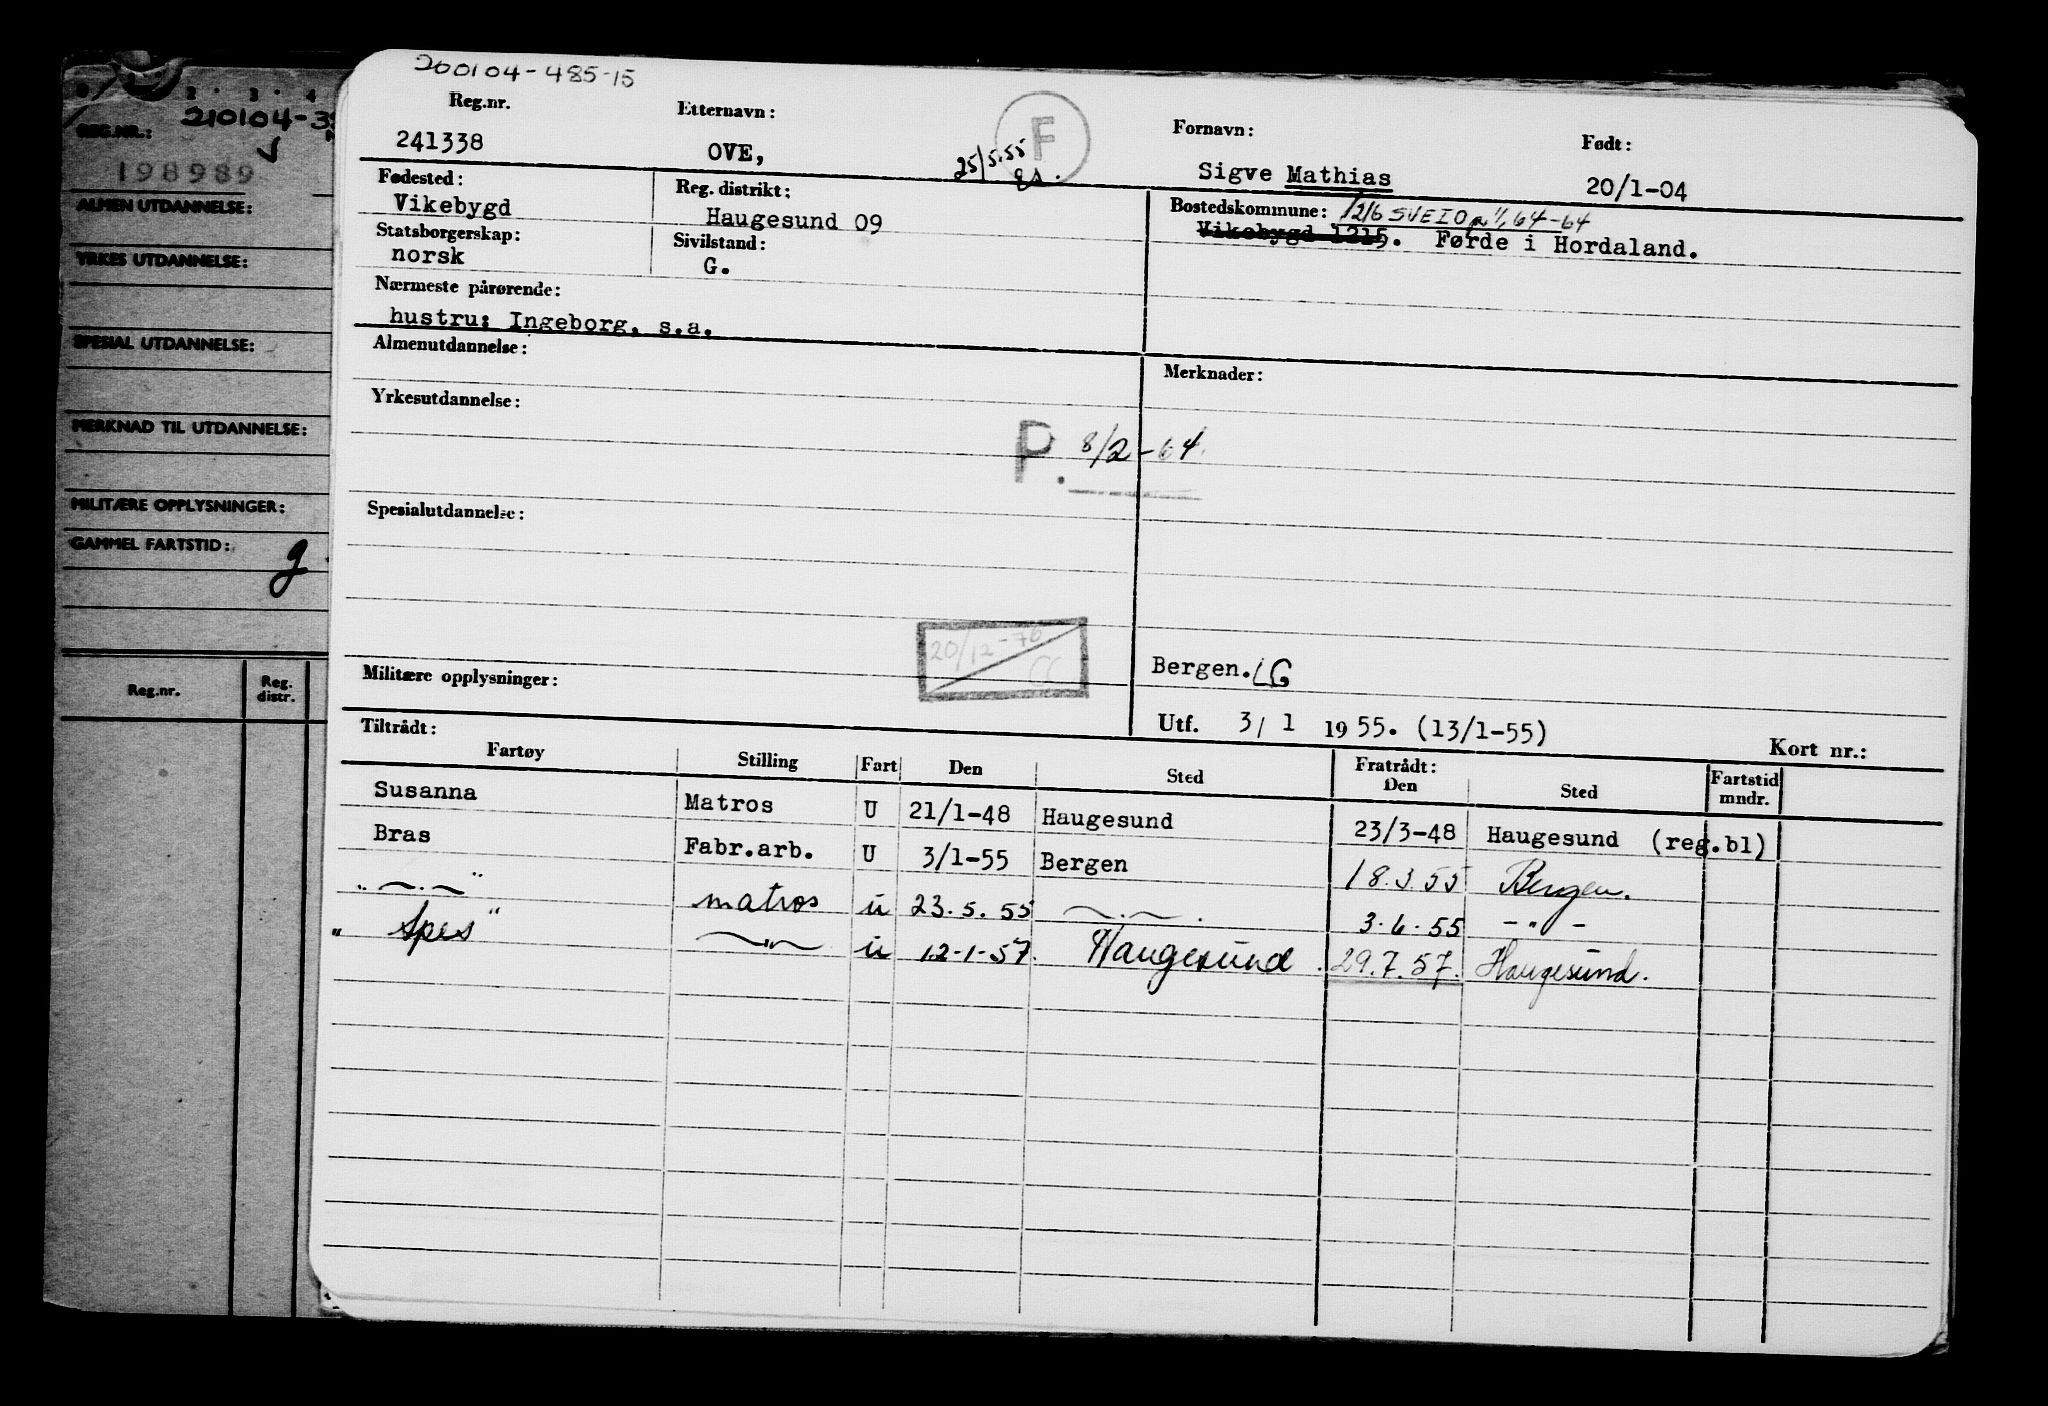 2 · 3 · 4
210104-3
REG.NR.:
198989
ALMEN UTDANNELSE:
YRKES UTDANNELSE:
SPESIAL UTDANNELSE:
MERKNAD TIL UTDANNELSE:
MILITÆRE OPPLYSNINGER:
GAMMEL FARTSTID: g
Reg.nr. Reg. distr.
200104-485-15
Reg.nr. Etternavn: F Fornavn: Født:
241338 OVE, 25/5.55 Sigve Mathias 20/1-04
Fødested: Reg. distrikt: Bostedskommune: 1216 SVEIO 64-64
Vikebygd Haugesund 09 Vikebygd 1215. Førde i Hordaland.
Statsborgerskap: Sivilstand:
norsk G.
Nærmeste pårørende:
hustru: Ingeborg, s.a.
Almenutdannelse: Merknader:
Yrkesutdannelse:
P. 8/2-64
Spesialutdannelse:
20/12-76
Militære opplysninger: Bergen. LG
Utf. 3/ 1 1955. (13/1-55) Kort nr.:
Tiltrådt: Fratrådt:
Fartøy Stilling Fart Den Sted Den Sted Fartstid mndr.
Susanna Matros U 21/1-48 Haugesund 23/3-48 Haugesund (reg.bl)
Bras Fabr.arb. U 3/1-55 Bergen 18.3.55 Bergen.
" — . — " matros u 23.5.55 — . — . 3.6.55 - " -
" Spes " — " — u 12-1-57. Haugesund. 29.7.57. Haugesund.